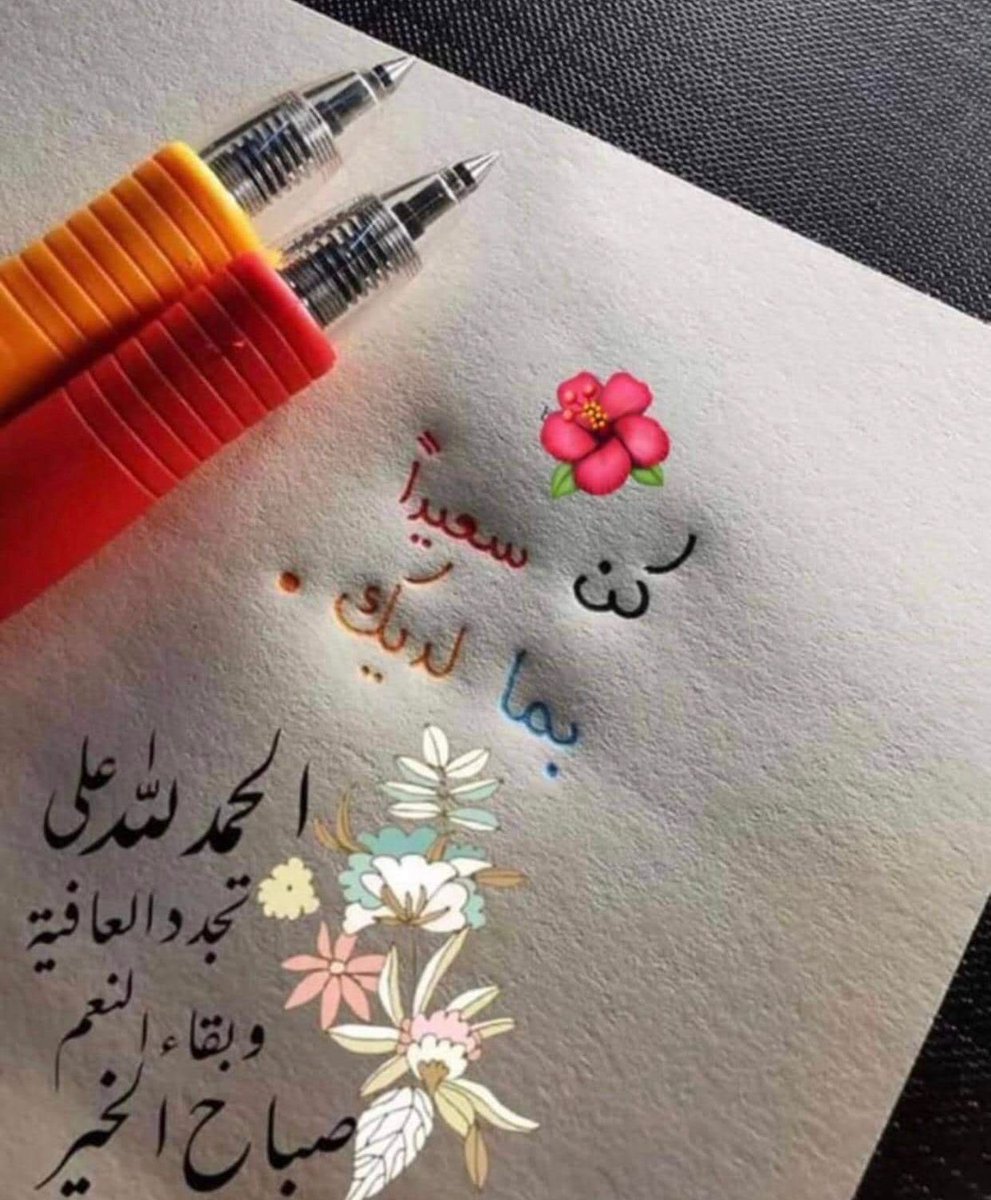 كن سعيداً
بما لديك .
الحمد لله على
تجدد العافية
وبقاء النعم
صباح الخير